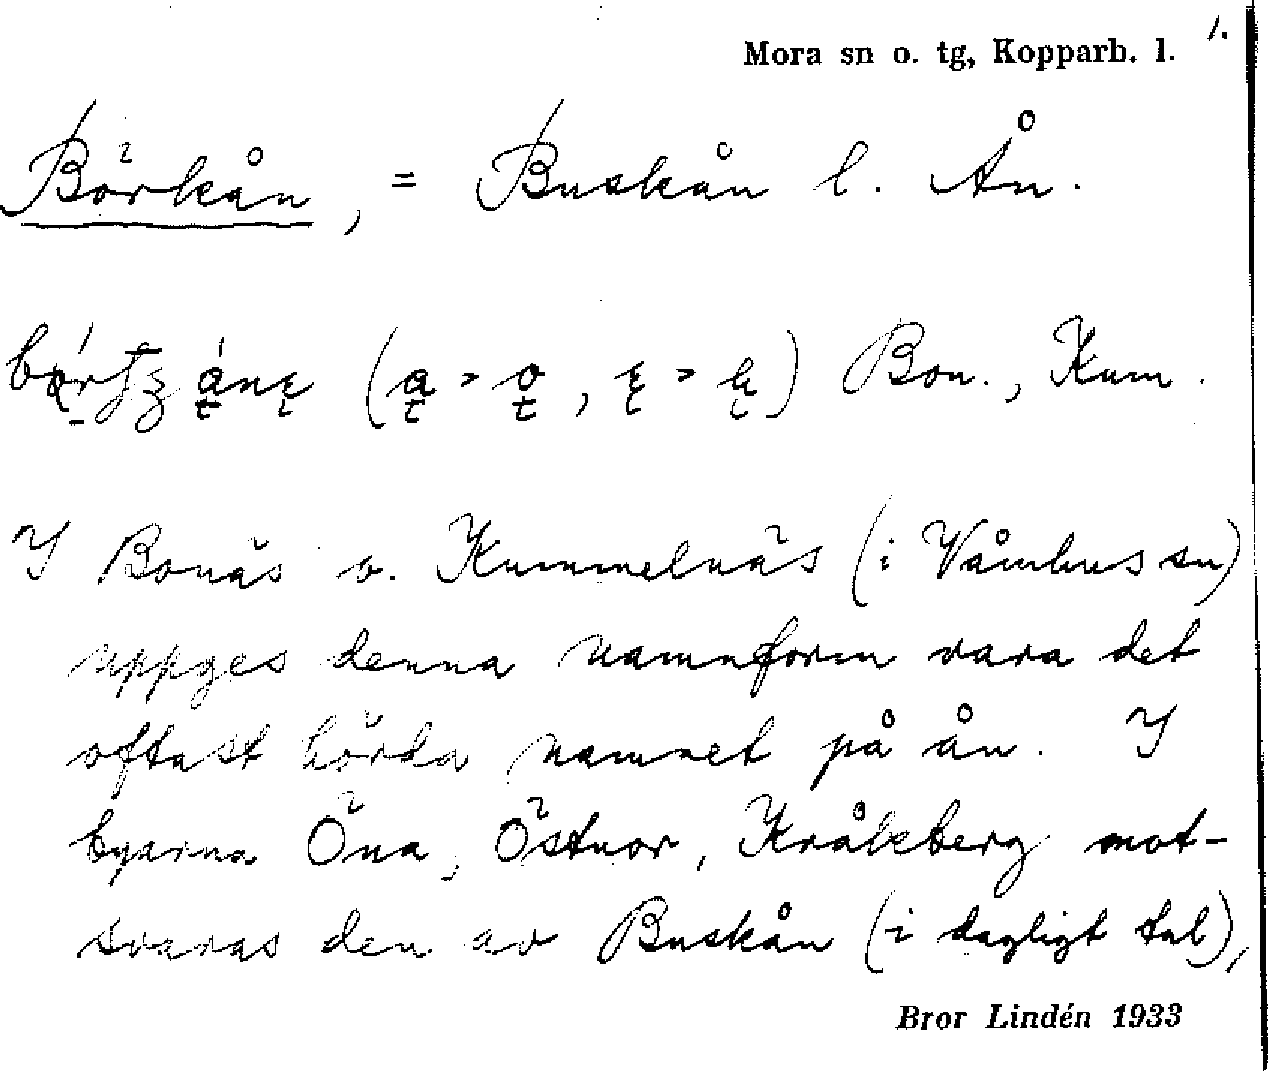 1.
Mora sn o. tg, Kopparb. l.
Börkån, = Buskån l. Ån.
(a > o, ę > ę) Bon., Kum.
I Bonäs o. Kummelnäs (i Våmhus sn)
uppges denna namnform vara det
oftast hörda namnet på ån. I
byarna Öna, Östnor, Kråkberg mot-
svaras den av Buskån (i dagligt tal),
Bror Lindén 1933